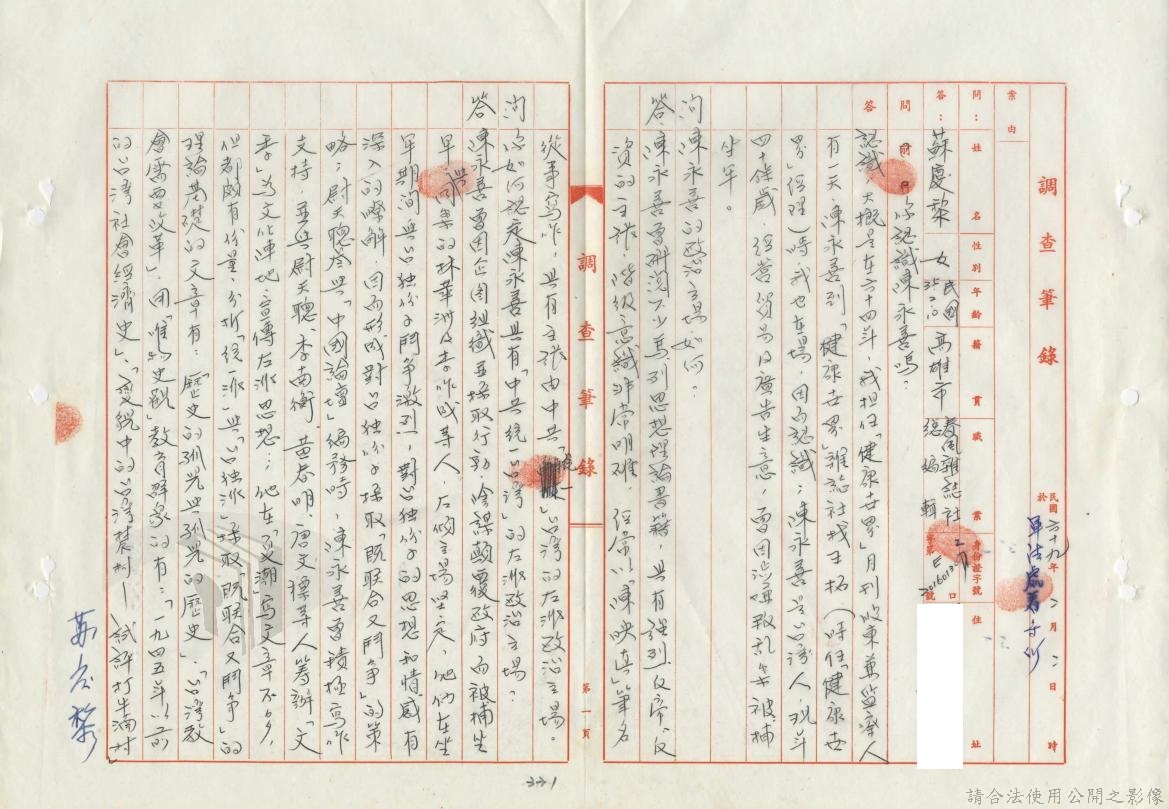 調查筆錄
民國六十九年二月二日 時
於軍法處看守所
案由
問：姓名 性別 年齡 籍貫 職業 身份證字號 住址
答：蘇慶黎 女 民國35. 高雄市 夏潮雜誌社總編輯
問 你認識陳永善嗎？
答 認識，大概是在六十四年，我担任「健康世界」月刊收東兼監察人
有一天，陳永善到「健康世界」雜誌社找王拓（時任「健康世
界」經理）時我也在場，因而認識；陳永善是台灣人，現年
四十餘歲，經營貿易及廣告生意，曾因涉嫌叛乱案被捕
坐牢。
問 陳永善的政治立場如何？
答 陳永善曾研讀不少馬列思想理論書籍，具有強烈反帝、反
資的主張，階級意識非常明確，經常以「陳映真」筆名
從事寫作，具有主張由中共「統一」台灣的左派政治立場。
問 你如何認定陳永善具有「中共統一台灣」的左派政治立場？
答 陳永善曾因企圖組織並採取行動，陰謀顛覆政府而被捕坐
牢，同案的林華洲及李作成等人，左傾立場堅定，他們在坐
牢期間與台独份子鬥争激烈，對台独份子的思想和情感有
深入的瞭解，因而形成對台独份子採取「既联合又鬥争」的策
略；尉天聰參與「中國論壇」編務時，陳永善曾積極寫作
支持，並與尉天聰、李南衡、黃春明、唐文標等人籌辦「文
季」為文化陣地，宣傳左派思想；他在「夏潮」寫文章不多，
但都頗有份量，分析「統一派」與「台独派」採取「既联合又鬥争」的
理論基礎的文章有：「歷史的孤兒與孤兒的歷史」、「台灣教
會需要改革」，用「唯物史觀」教育群衆的有：「一九四五年以前
的台灣社會經濟史」、「變貌中的台灣農村——試評打牛湳村」
第一頁
調查筆錄
蘇慶黎
請合法使用公開之影像